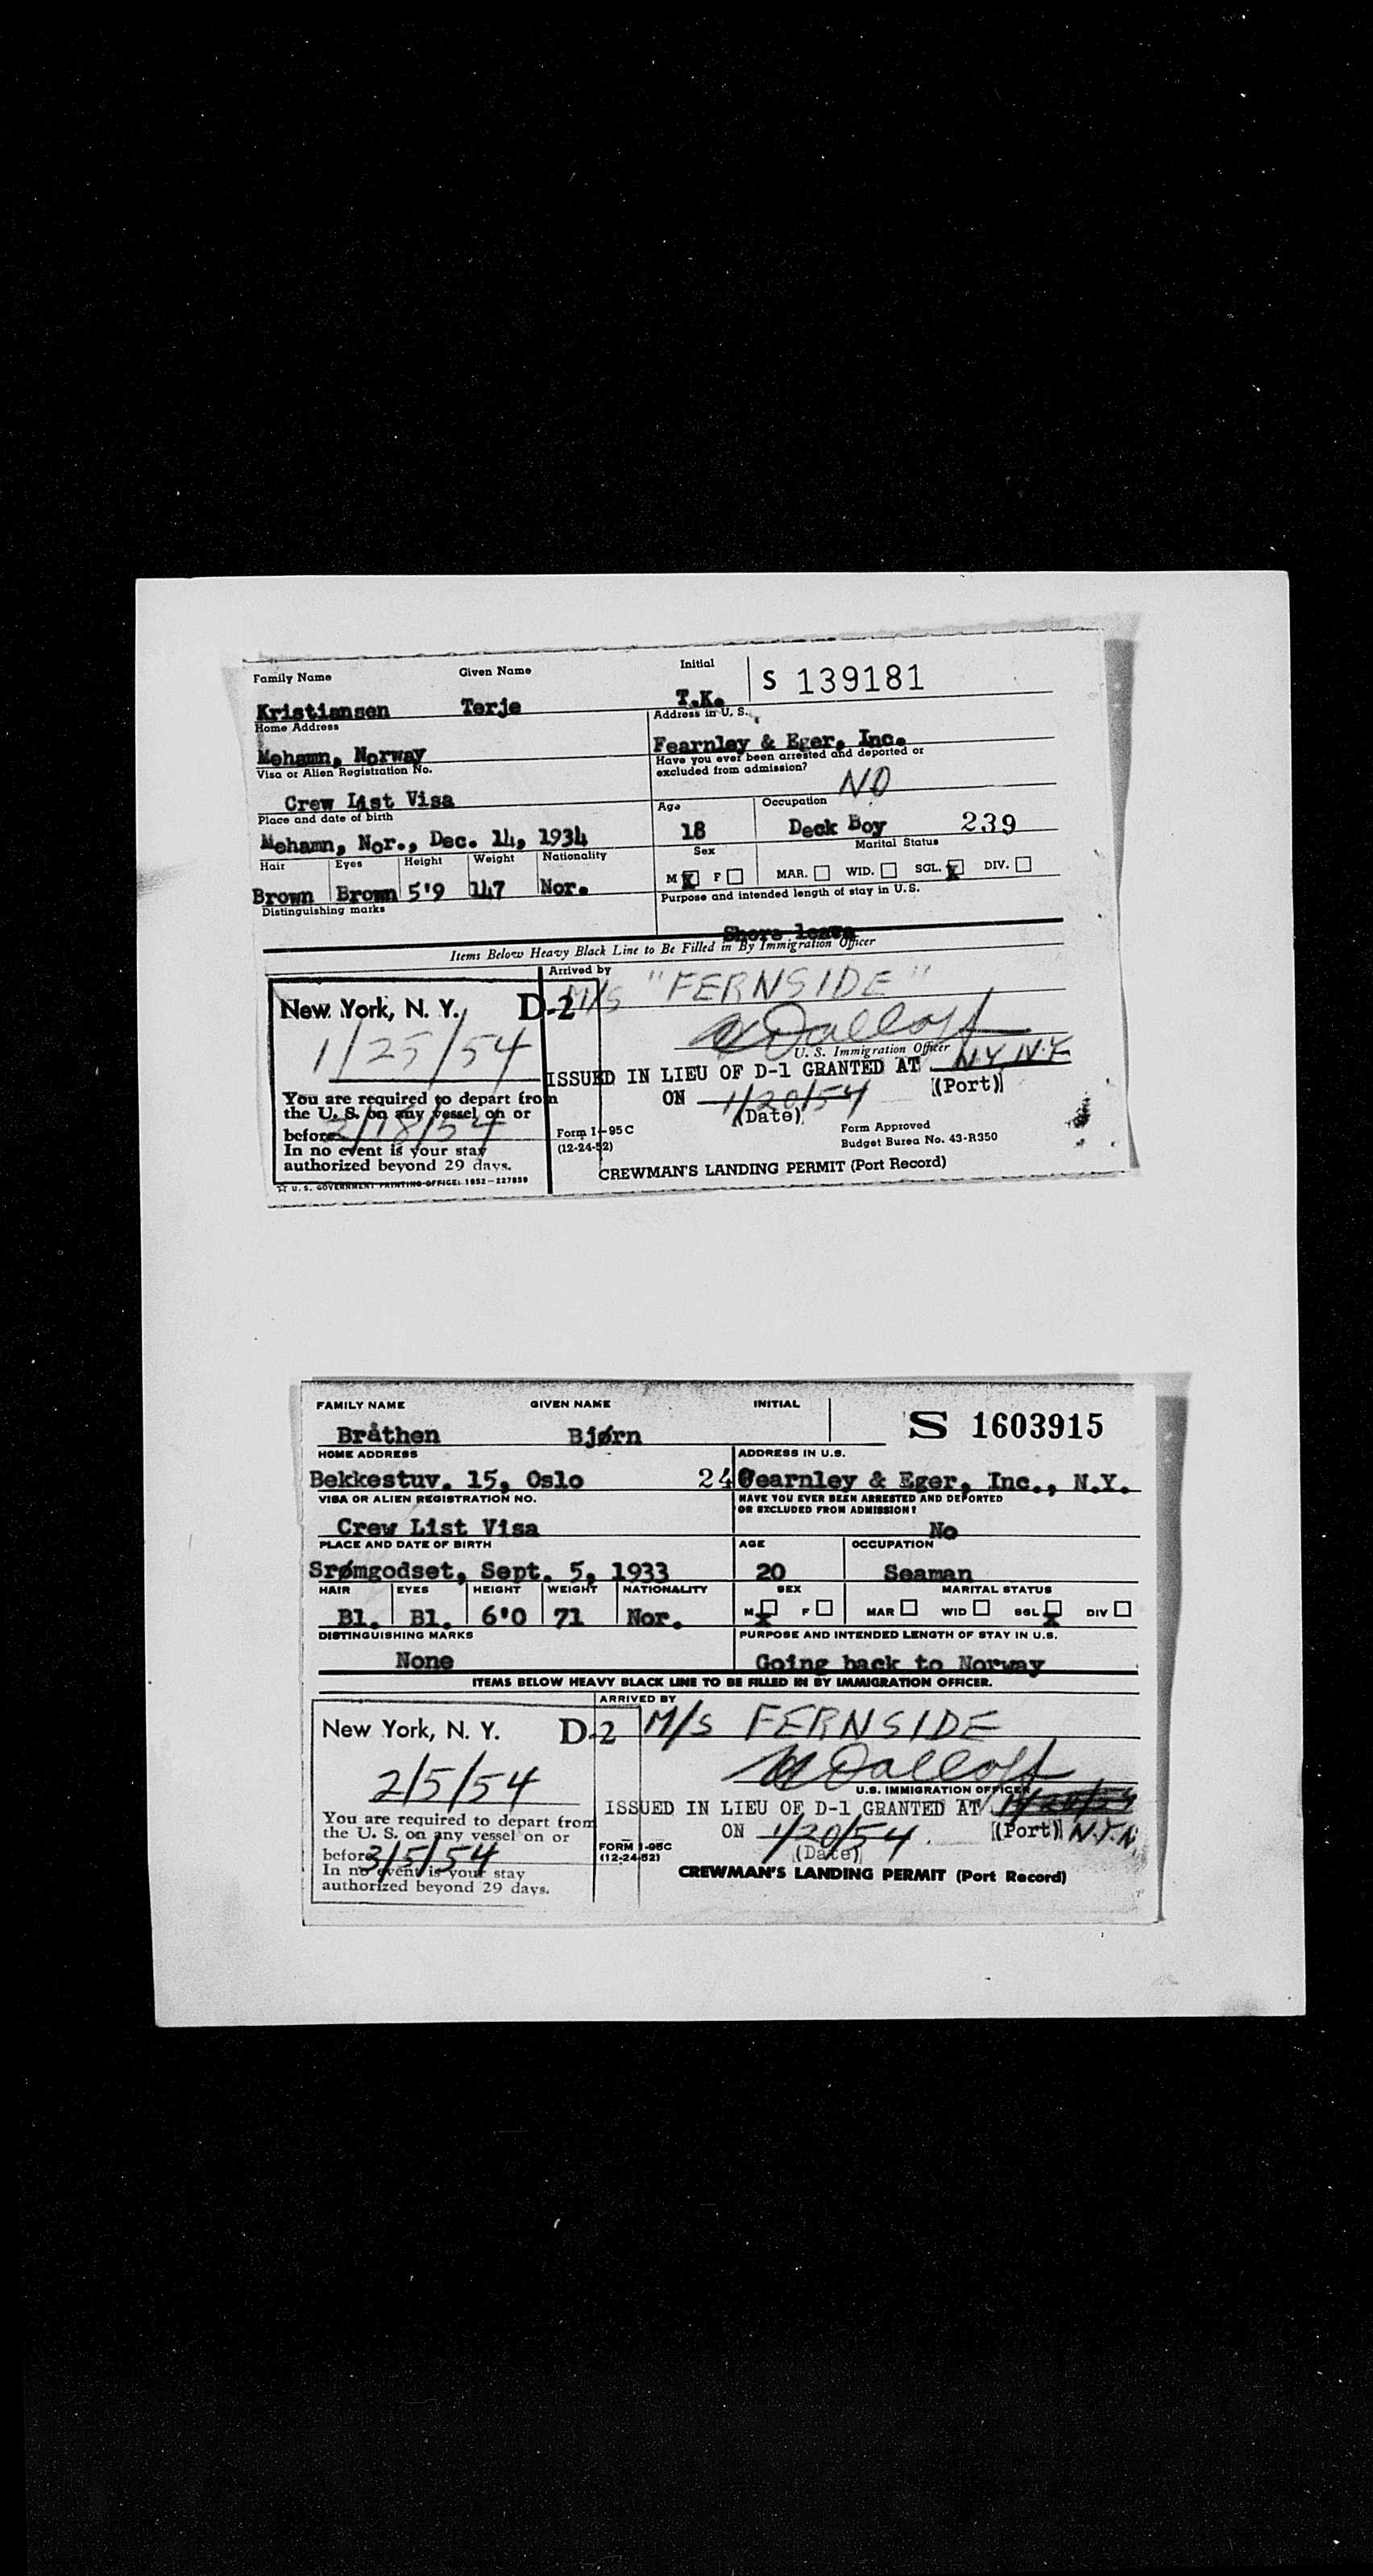 Family Name Given Name Initial S 139181
Kristiansen Terje T.K.
Home Address Address in U. S.
Mehamn, Norway Fearnley & Eger, Inc.
Visa or Alien Registration No. Have you ever been arrested and deported or excluded from admission?
Crew List Visa NO
Place and date of birth Age Occupation
Mehamn, Nor., Dec. 14, 1934 18 Deck Boy 239
Hair Eyes Height Weight Nationality Sex Marital Status
Brown Brown 5'9 147 Nor. M X F MAR. WID. SGL. X DIV.
Distinguishing marks Purpose and intended length of stay in U. S.
Shore leave
Items Below Heavy Black Line to Be Filled in By Immigration Officer
Arrived by
New York, N. Y. D-2 M/S "FERNSIDE"
1/25/54
U. S. Immigration Officer
ISSUED IN LIEU OF D-1 GRANTED AT N.Y. N.Y.
(Port)
You are required to depart from
the U. S. on any vessel on or
before 2/18/54
In no event is your stay
authorized beyond 29 days.
ON 1/20/54
(Date)
Form I-95C
(12-24-52)
Form Approved
Budget Burea No. 43-R350
CREWMAN'S LANDING PERMIT (Port Record)
☆ U. S. GOVERNMENT PRINTING OFFICE: 1952-227859
FAMILY NAME GIVEN NAME INITIAL S 1603915
Bråthen Bjørn
HOME ADDRESS ADDRESS IN U.S.
Bekkestuv. 15, Oslo 240 Fearnley & Eger, Inc., N.Y.
VISA OR ALIEN REGISTRATION NO. HAVE YOU EVER BEEN ARRESTED AND DEPORTED OR EXCLUDED FROM ADMISSION?
Crew List Visa No
PLACE AND DATE OF BIRTH AGE OCCUPATION
Srømgodset, Sept. 5, 1933 20 Seaman
HAIR EYES HEIGHT WEIGHT NATIONALITY SEX MARITAL STATUS
Bl. Bl. 6'0 71 Nor. M X F MAR WID SGL X DIV
DISTINGUISHING MARKS PURPOSE AND INTENDED LENGTH OF STAY IN U.S.
None Going back to Norway
ITEMS BELOW HEAVY BLACK LINE TO BE FILLED IN BY IMMIGRATION OFFICER.
ARRIVED BY
New York, N. Y. D-2 M/S FERNSIDE
2/5/54
U.S. IMMIGRATION OFFICER
ISSUED IN LIEU OF D-1 GRANTED AT
ON 1/20/54 (Port) N.Y.N.
(Date)
You are required to depart from
the U. S. on any vessel on or
before 3/5/54
In no event is your stay
authorized beyond 29 days.
FORM I-95C
(12-24-52)
CREWMAN'S LANDING PERMIT (Port Record)